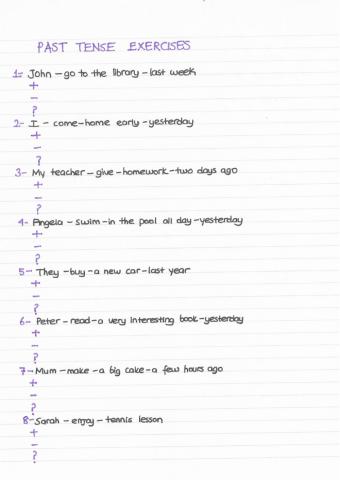 PAST TENSE EXERCISES
1- John - go to the library - last week
+
-
?
2- I - come - home early - yesterday
+
-
?
3- My teacher - give - homework - two days ago
+
-
?
4- Angela - swim - in the pool all day - yesterday
+
-
?
5- They - buy - a new car - last year
+
-
?
6- Peter - read - a very interesting book - yesterday
+
-
?
7- Mum - make - a big cake - a few hours ago
+
-
?
8- Sarah - enjoy - tennis lesson
+
-
?